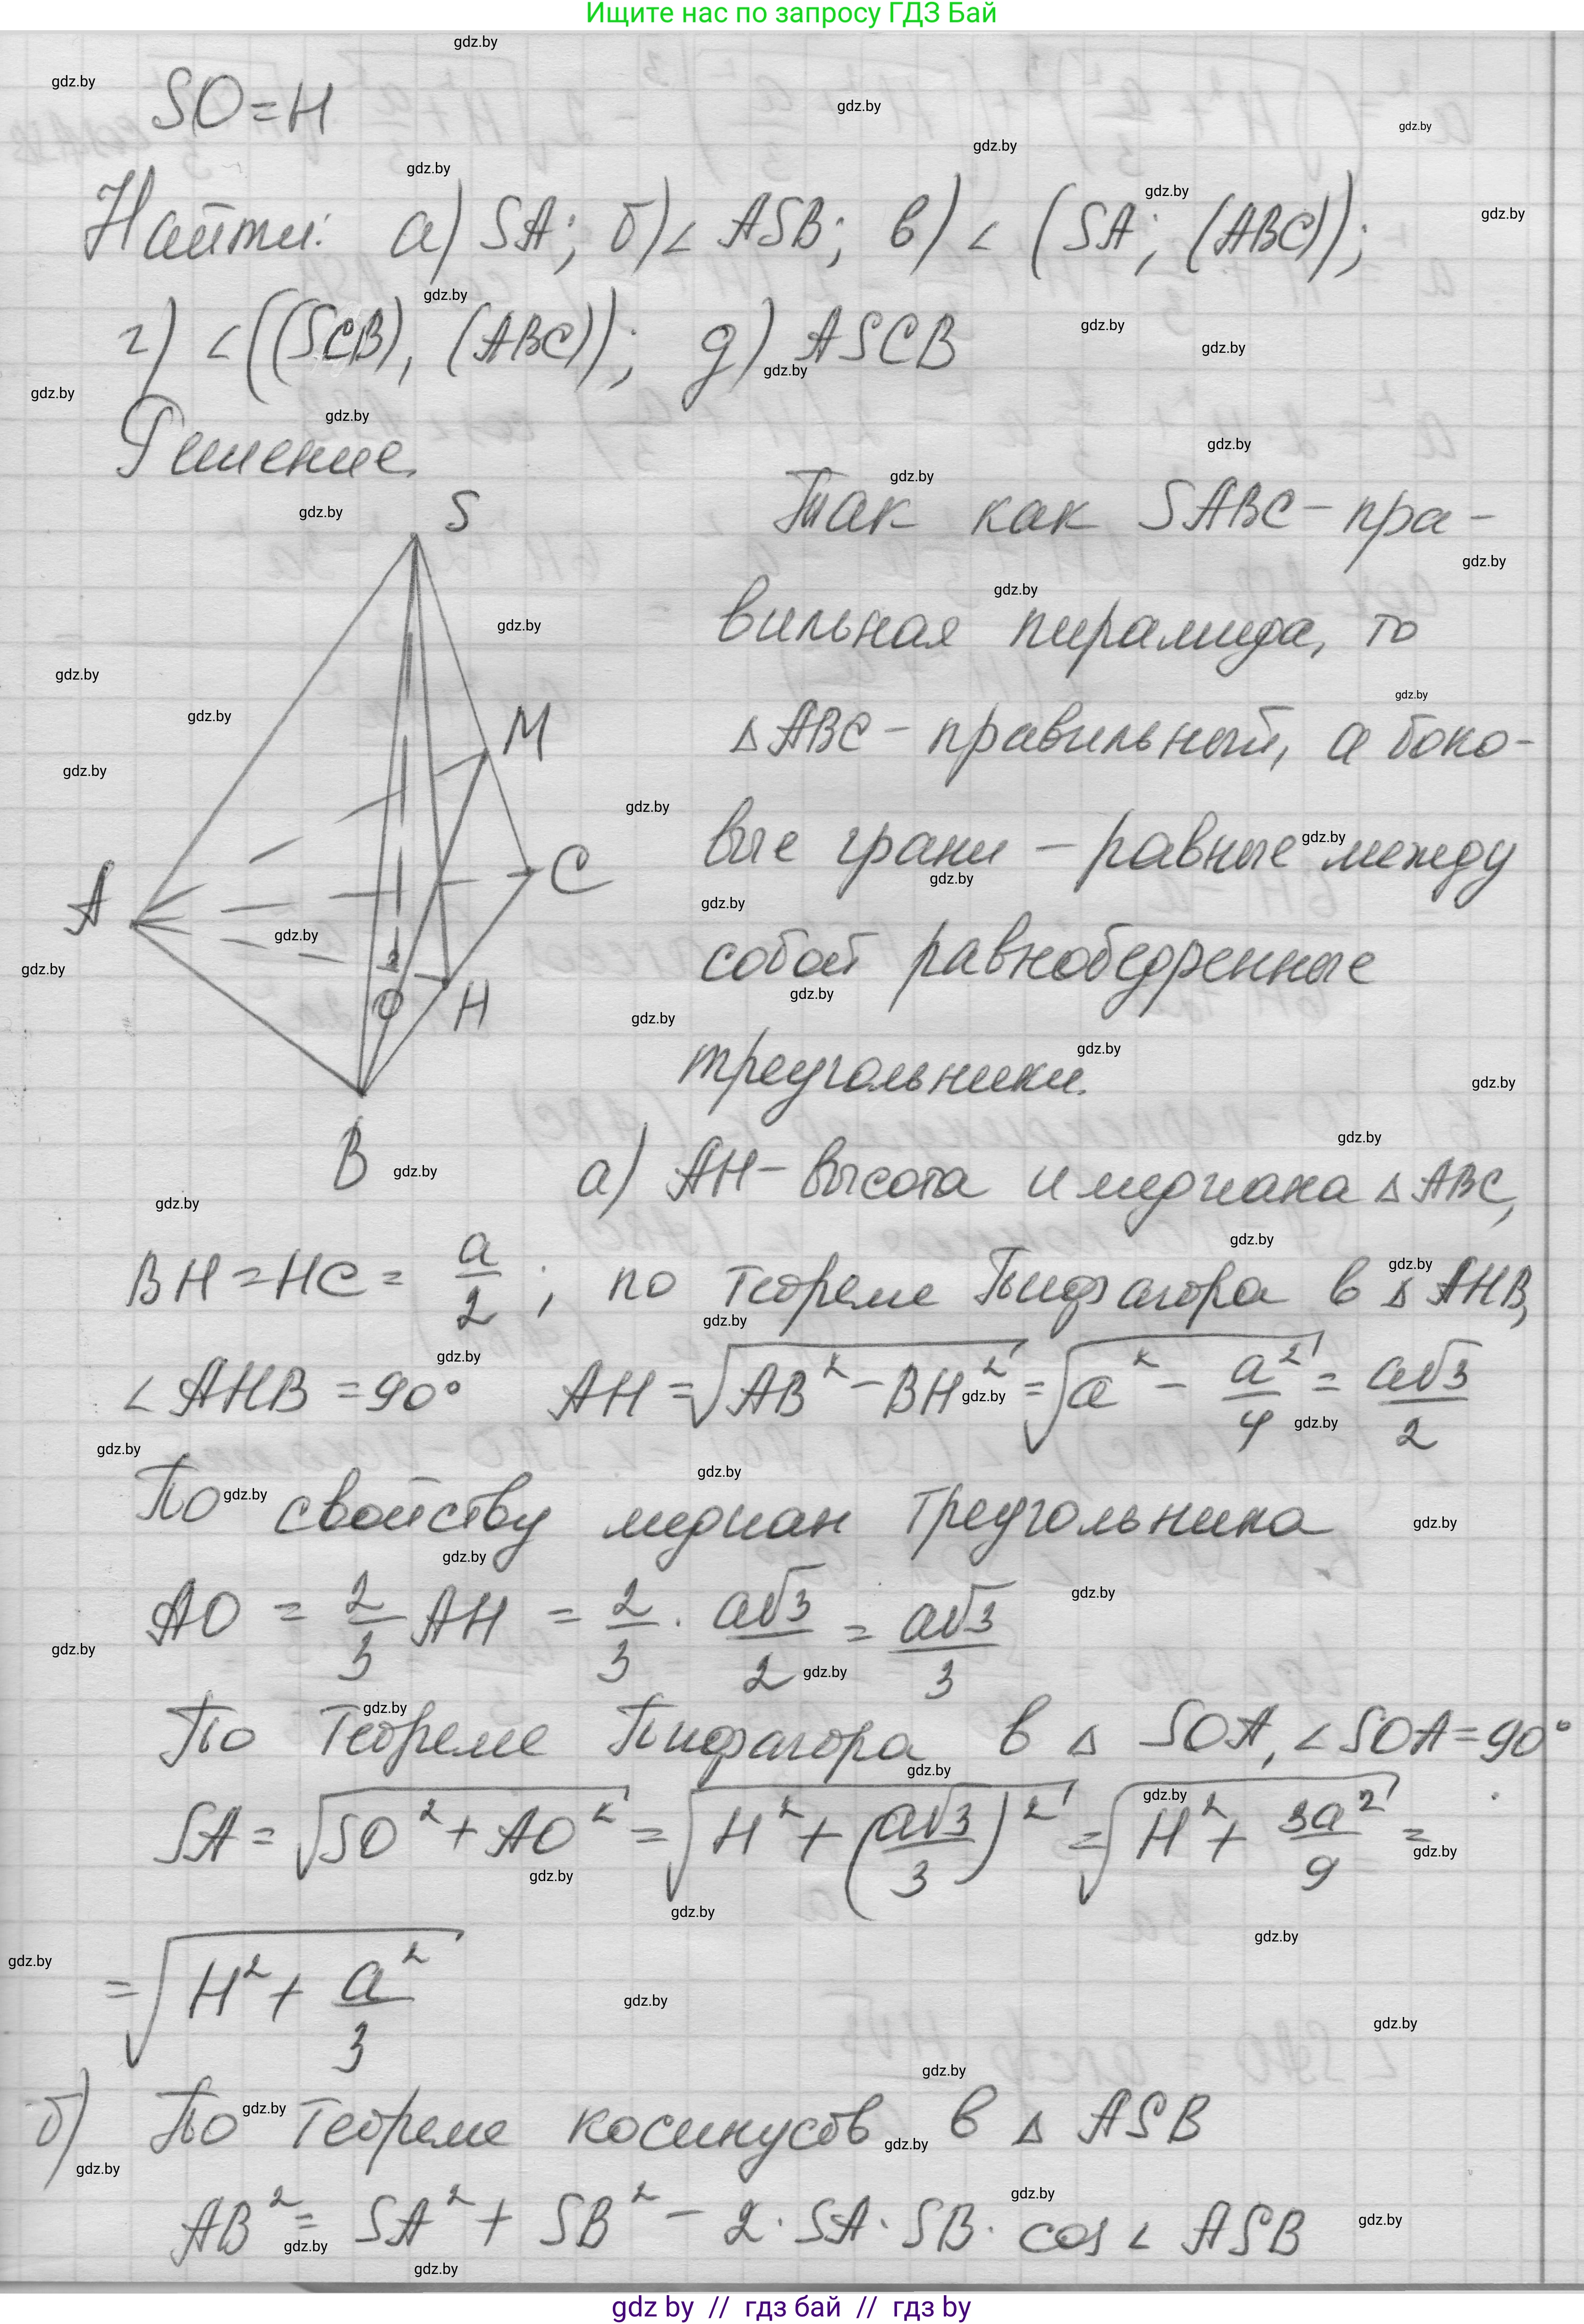 Ищите нас по запросу ГДЗ Бай
SO = H
Найти: а) SA; б) ∠ ASB; в) ∠ (SA; (ABC));
г) ∠ ((SCB), (ABC)); д) ASCB
Решение
S
M
A
C
O
H
B
Так как SABC - пра-
вильная пирамида, то
△ ABC - правильный, а боко-
вые грани - равные между
собой равнобедренные
треугольники.
а) AH - высота и медиана △ ABC,
BH = HC = a/2; по теореме Пифагора в △ AHB,
∠ AHB = 90° AH = √(AB² - BH²) = √(a² - a²/4) = a√3/2
По свойству медиан треугольника
AO = 2/3 AH = 2/3 · a√3/2 = a√3/3
По теореме Пифагора в △ SOA, ∠ SOA = 90°
SA = √(SO² + AO²) = √(H² + (a√3/3)²) = √(H² + 3a²/9) =
= √(H² + a²/3)
б) По теореме косинусов в △ ASB
AB² = SA² + SB² - 2 · SA · SB · cos ∠ ASB
gdz by // гдз бай // гдз by